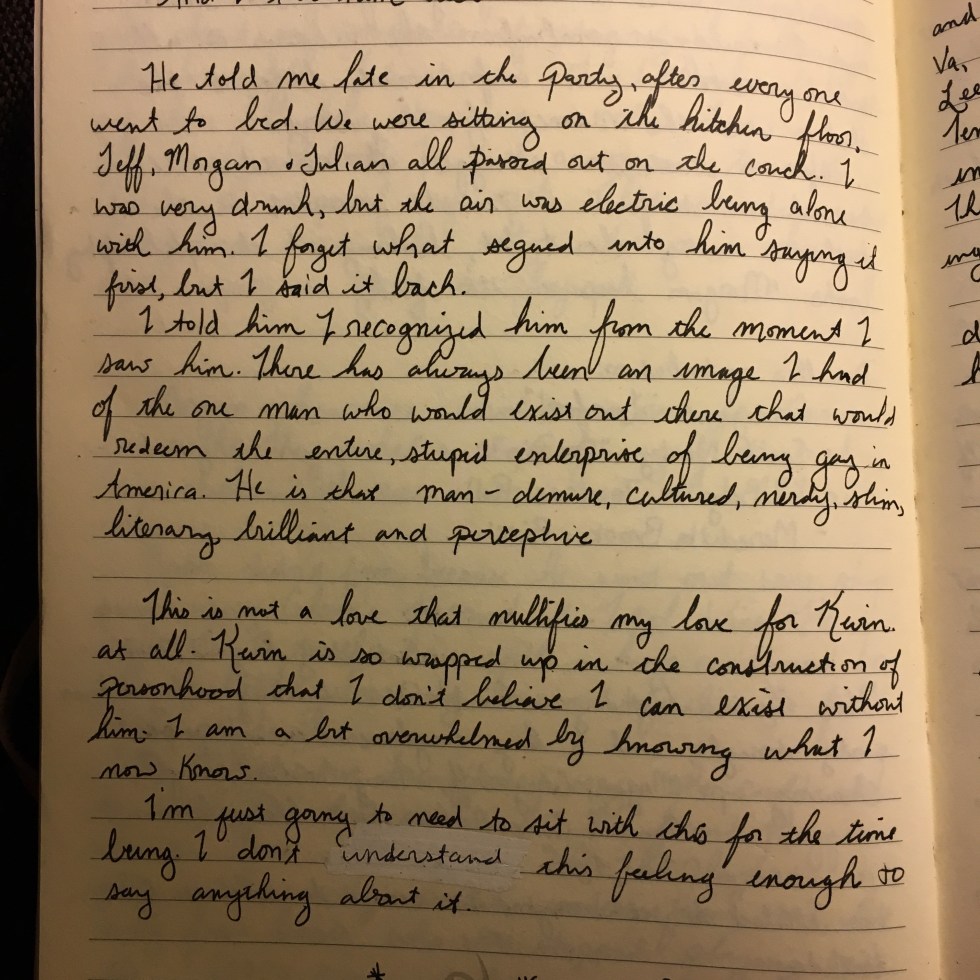 He told me late in the party, after everyone
went to bed. We were sitting on the kitchen floor.
Jeff, Morgan & Julian all passed out on the couch. I
was very drunk, but the air was electric being alone
with him. I forget what segued into him saying it
first, but I said it back.
I told him I recognized him from the moment I
saw him. There has always been an image I had
of the one man who would exist out there that would
redeem the entire, stupid enterprise of being gay in
America. He is that man - demure, cultured, nerdy, slim,
literary, brilliant and perceptive
This is not a love that nullifies my love for Kevin.
at all. Kevin is so wrapped up in the construction of
personhood that I don't believe I can exist without
him. I am a bit overwhelmed by knowing what I
now know.
I'm just going to need to sit with this for the time
being. I don't understand this feeling enough to
say anything about it.
*
and
Va,
Lee
in
d